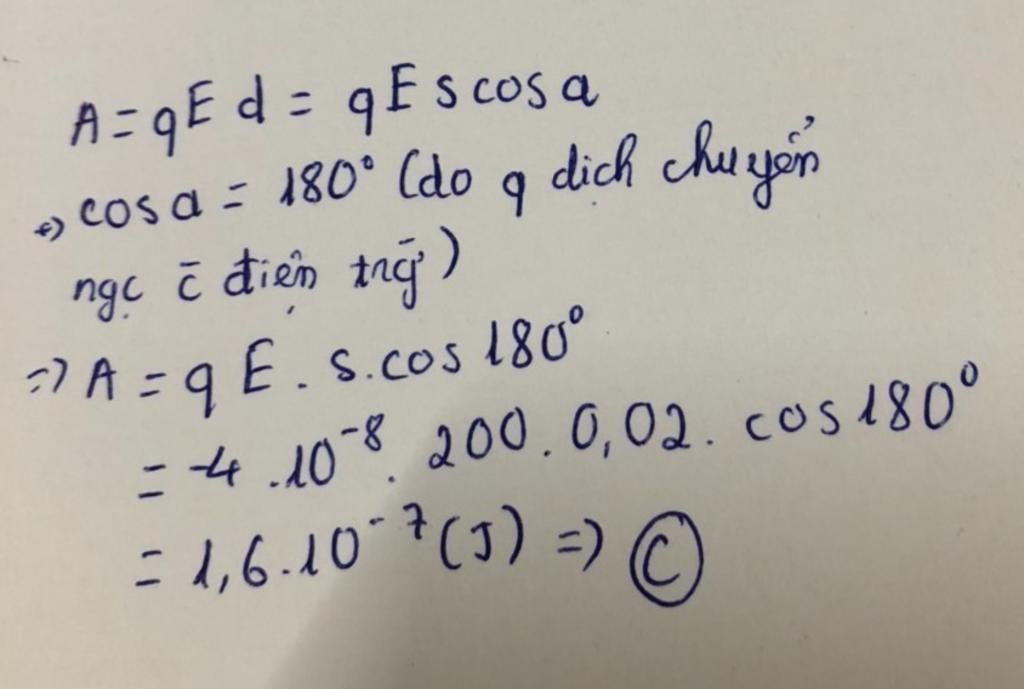 A = qEd = qEscosa
⇔ cosa = 180° (do q dịch chuyển
ngc c̄ điện trg̀)
=> A = qE. s.cos 180°
= -4 .10⁻⁸. 200. 0,02. cos180°
= 1,6.10⁻⁷ (J) => C